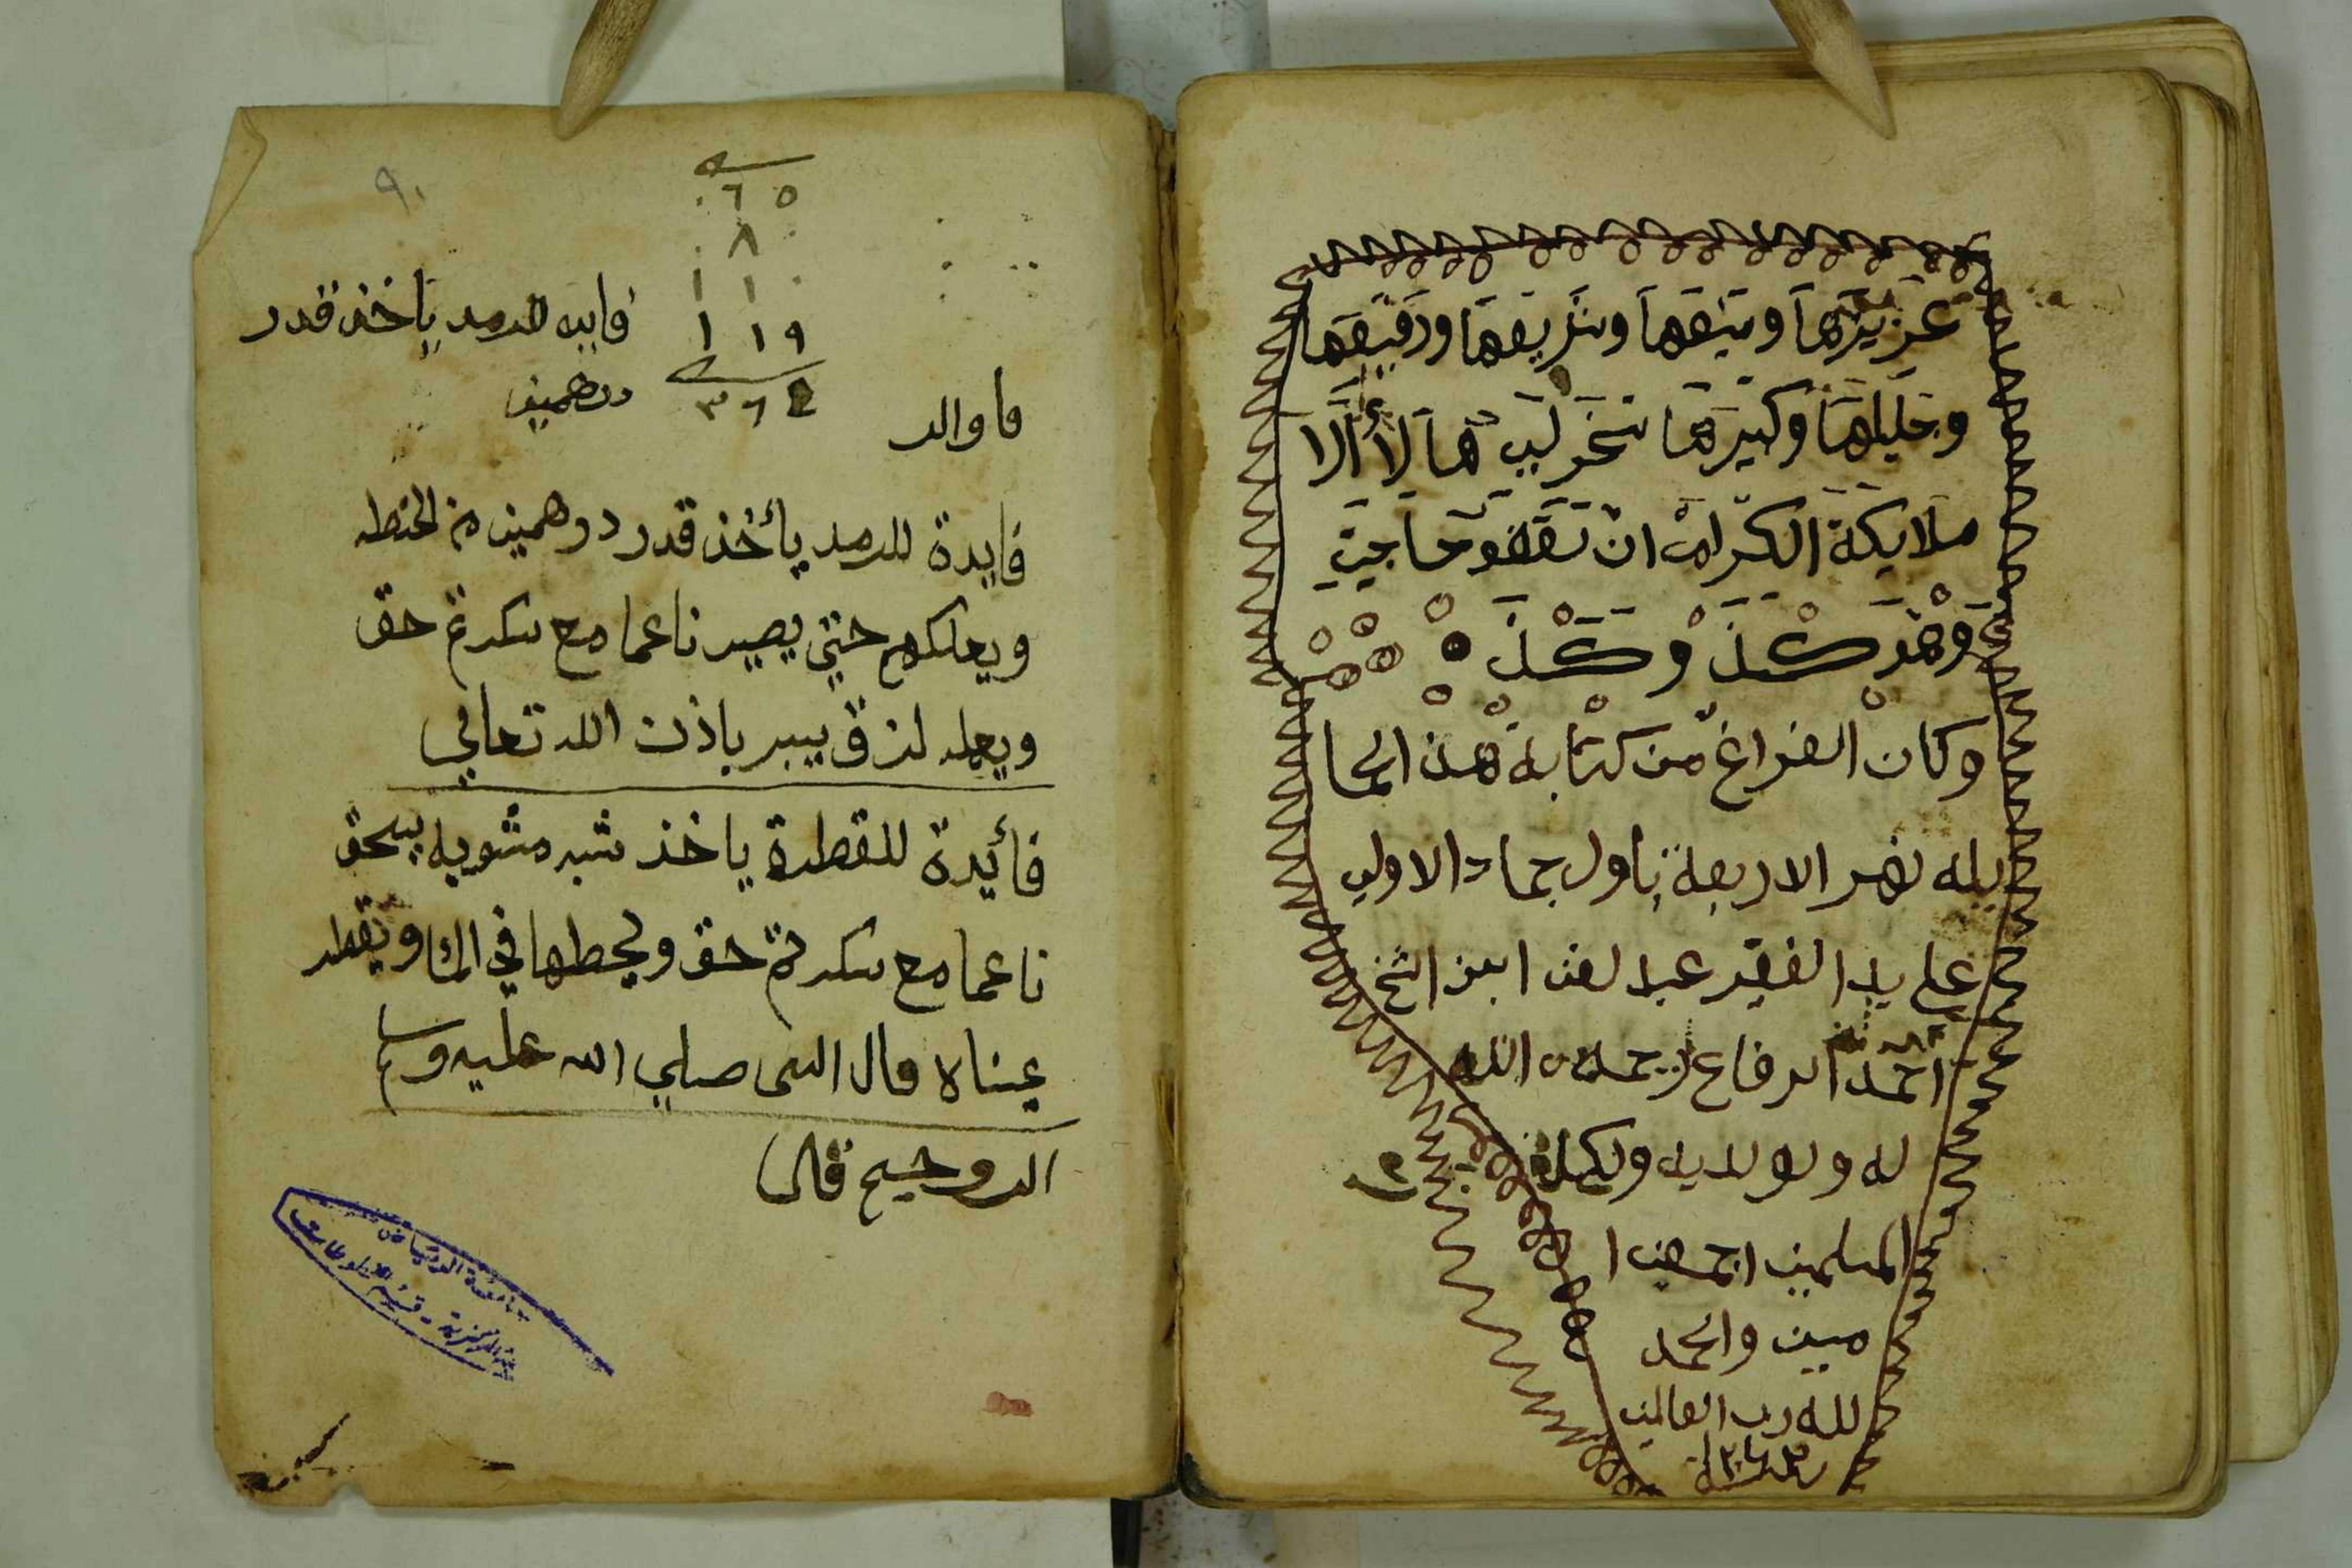 عزيزها وثيقها وشريفها ودقيقها
وجليلها وكبيرها
ملايكة الكرام ان تقضو حاجتي
وهو كذ وكذ
وكان الفراغ من كتابة هذ الحا
يله نهر الاربعة باول جماد الاولي
علي يد الفقير عبد ابن الشخ
احمد الرفاع رحمه الله
له ولولديه ولكل
المسلمين اجمعين ا
مين والحمد
لله رب العالمين
٩٠
٦٥
٨
١١٠
١١٩
٣٦٤
فايده للرمد ياخذ قدر
درهمين
فايدة للرمد يأخذ قدر درهمين من الحنطه
ويعلكهم حتي يصير ناعما مع سكرة حق
ويعمله لزق يبر باذن الله تعالي
فأيدة للقطرة ياخذ شبه مشويه يسحق
ناعما مع سكرة حق ويحطها في الما ويقطر
عيناه قال النبي صلي الله عليه وسلم
قال
جامعة الرياض
المركزية - قسم المخطوطات